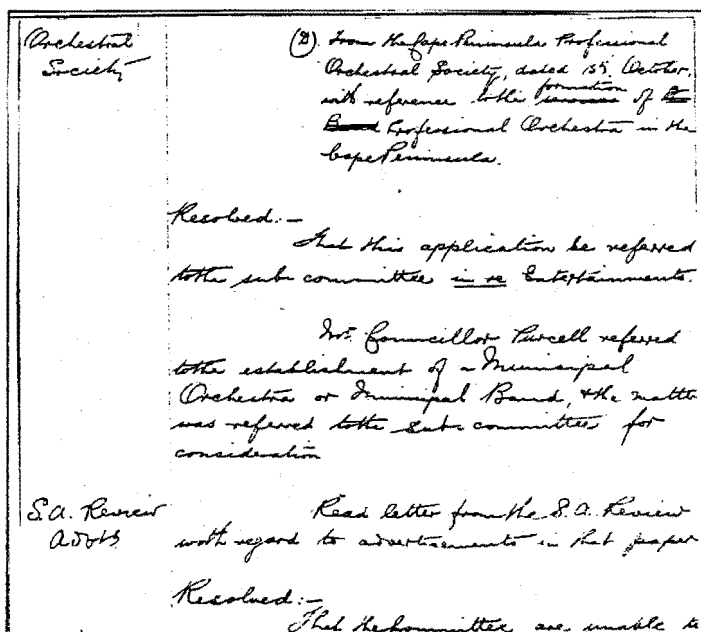 Orchestral
Society
(D). From the Cape Peninsula Professional
Orchestral Society, dated 15th October,
with reference to the formation of
Band Professional Orchestra in the
Cape Peninsula.
Resolved:-
That this application be referred
to the sub committee in re Entertainments.
Mrs. Councillor Purcell referred
to the establishment of a Municipal
Orchestra or Municipal Band, & the matter
was referred to the sub-committee for
consideration
S.A. Review
Advts
Read letter from the S.A. Review
with regard to advertisements in that paper
Resolved:-
That the Committee are unable to